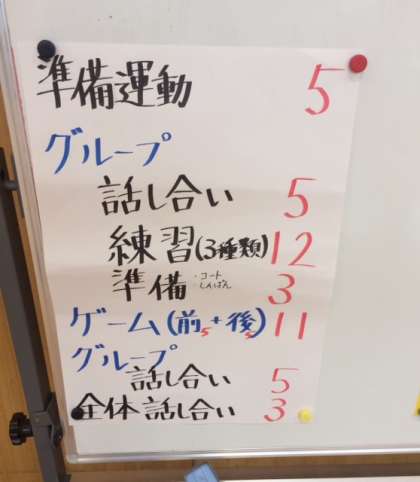 準備運動 5
グループ
話し合い 5
練習(3種類) 12
準備 ・コート ・しんぱん 3
ゲーム(前5+後5) 11
グループ
話し合い 5
全体話し合い 3